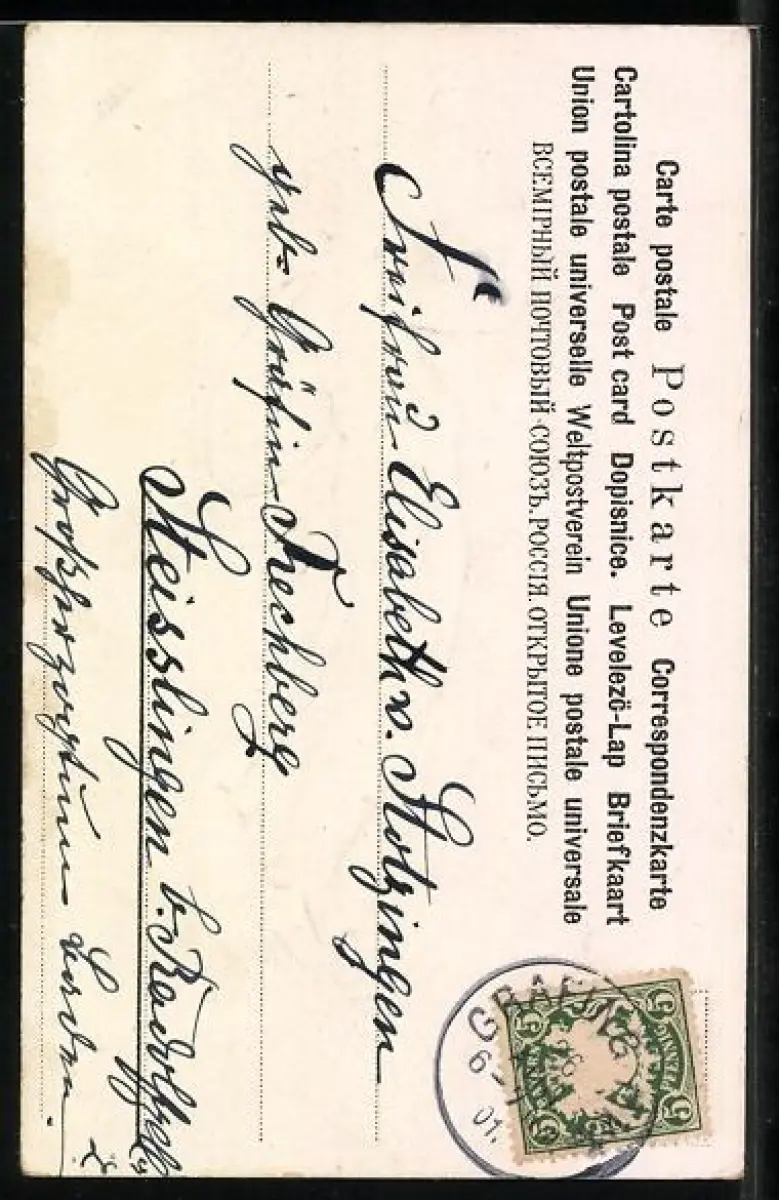 Carte postale Postkarte Correspondenzkarte
Cartolina postale Post card Dopisnice. Levelezö-Lap Briefkaart
Union postale universelle Weltpostverein Unione postale universale
ВСЕМІРНЫЙ ПОЧТОВЫЙ СОЮЗЪ. РОССІЯ. ОТКРЫТОЕ ПИСЬМО.
GRAFING
26
6-7
01.
5 5
Freifrau Elisabeth v. Stotzingen
geb. Gräfin Rechberg
Steisslingen b. Radolfzell
Großherzogtum Baden.